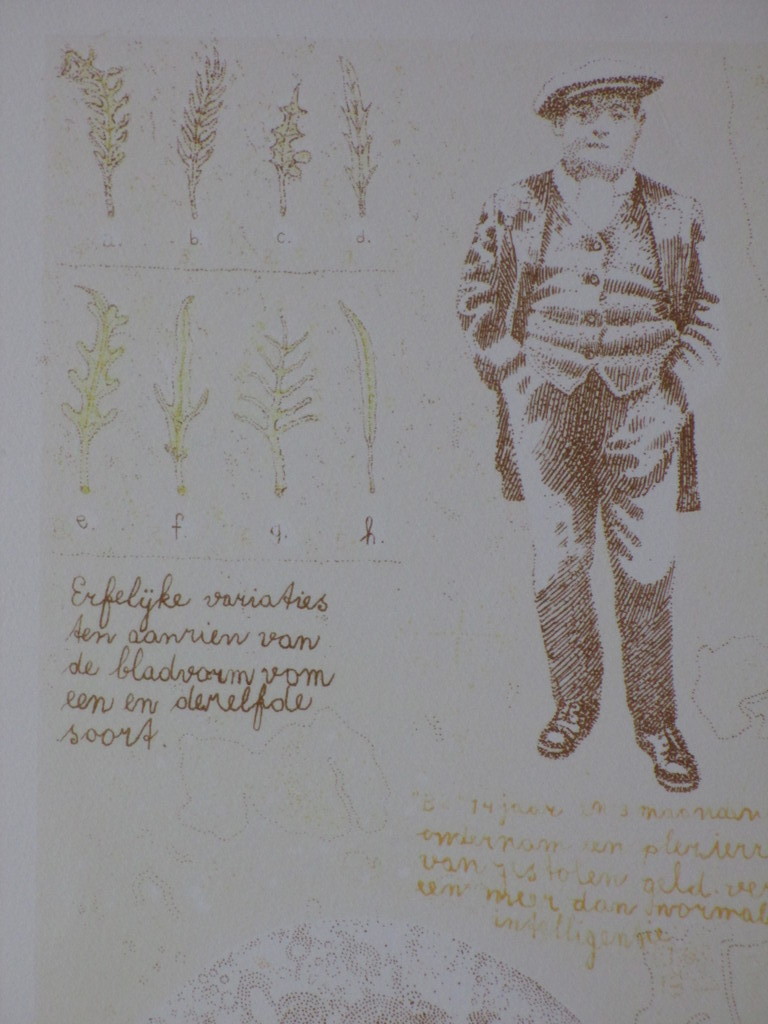 a. b. c. d.
e. f. g. h.
Erfelijke variaties
ten aanzien van
de bladvorm vom
een en dezelfde
soort.
jaar en 3 maanden
ondernam een plezierr
van gestolen geld. ver
een meer dan normal
intelligentie